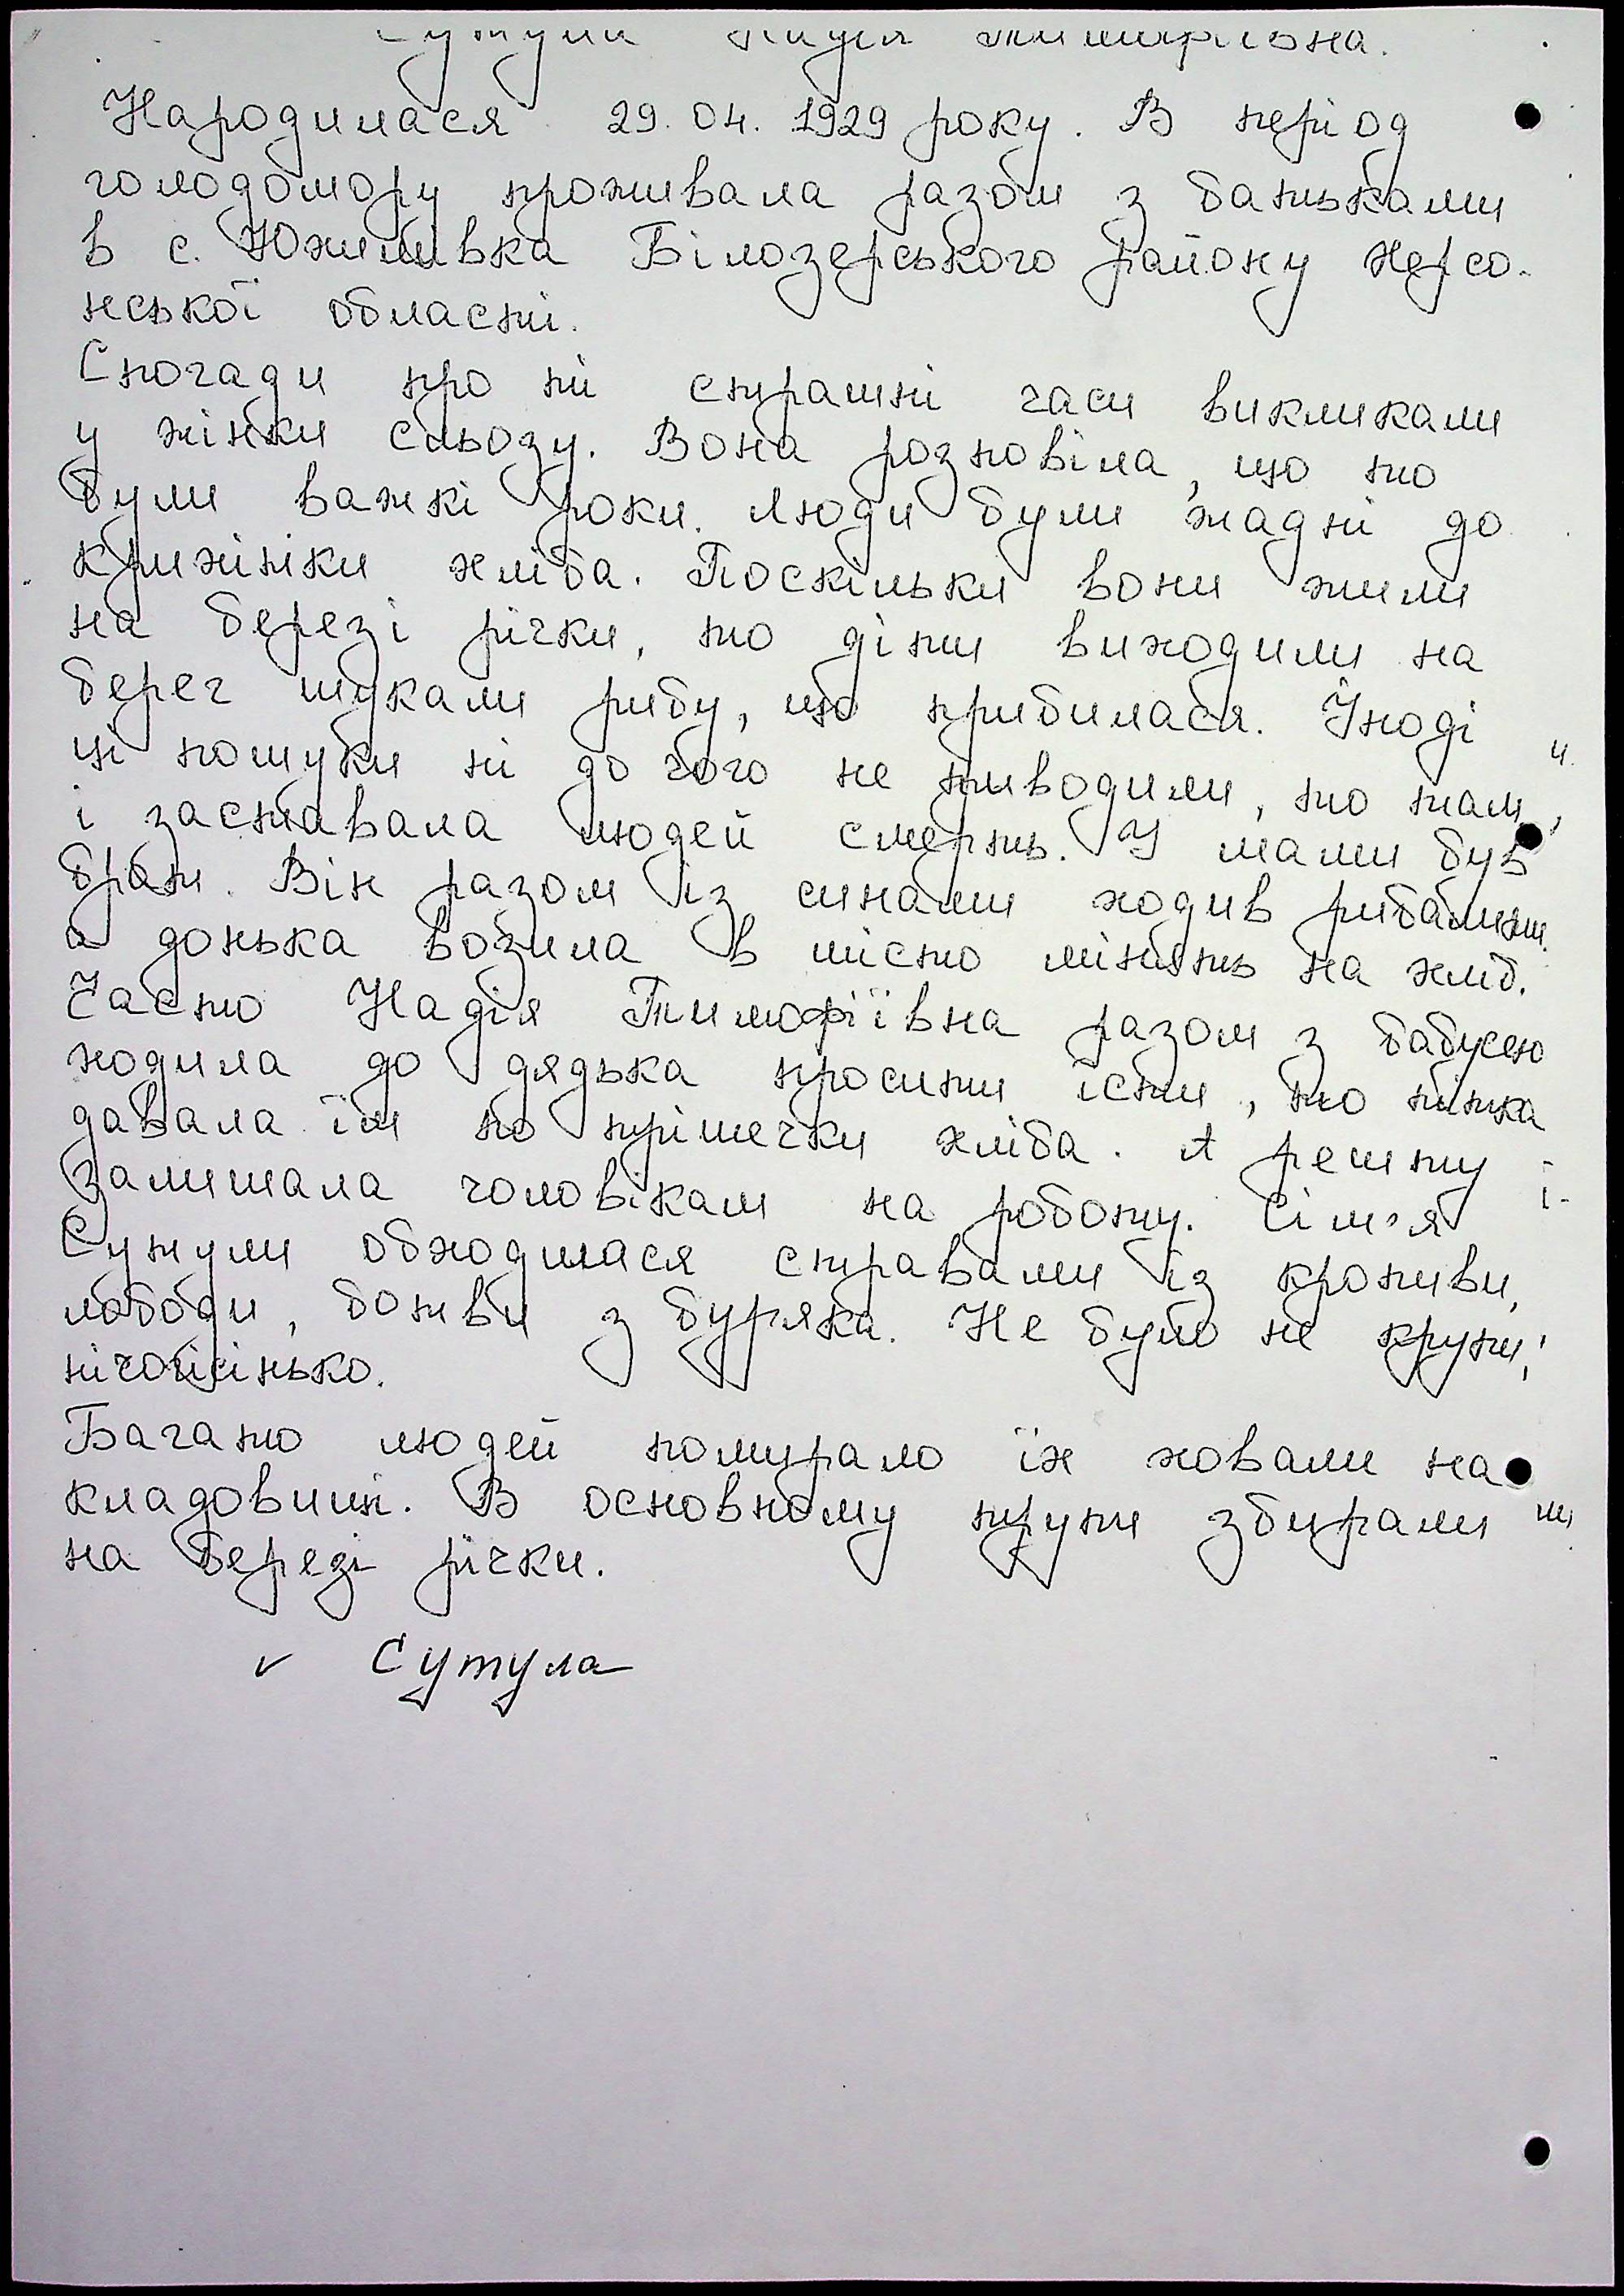 Сутула Надія Тимофіївна.
Народилася 29.04.1929 року. В період
голодомору проживала разом з батьками
в с. Южилівка Білозерського району Херсо-
нської області.
Спогади про ті страшні часи викликали
у жінки сльозу. Вона розповіла, що то
були важкі роки. Люди були жадні до
крихітки хліба. Поскільки вони жили
на березі річки, то діти виходили на
берег шукали рибу, що прибилася. Іноді
ці пошуки ні до чого не приводили, то там
і заставала людей смерть. У мами був
брат. Він разом із синами ходив рибалити,
а донька возила в місто міняти на хліб.
Часто Надія Тимофіївна разом з бабусею
ходила до дядька просити їсти, то тітка
давала їм по трішечки хліба. А решту
залишала чоловікам на роботу. Сім'я
Сутули обходилася стравами із кропиви,
лободи, ботви з буряка. Не було не крупи,
нічогісінько.
Багато людей помирало їх ховали на
кладовищі. В основному трупи збирали
на березі річки.
✓ Сутула